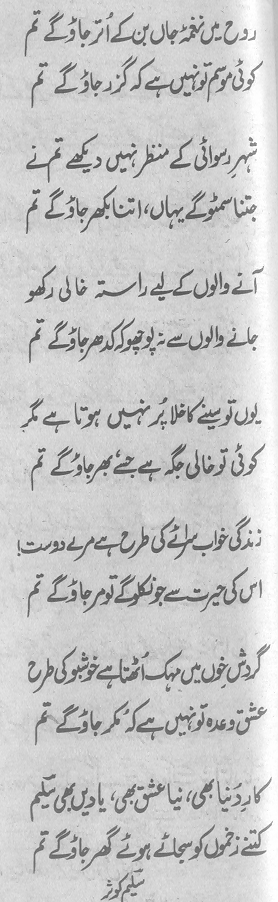 روح میں نغمۂ جاں بن کے اُتر جاؤ گے تم
کوئی موسم تو نہیں ہے کہ گزر جاؤ گے تم
شہرِ رسوائی کے منظر نہیں دیکھے تم نے
جتنا سمٹو گے یہاں، اتنا بکھر جاؤ گے تم
آنے والوں کے لیے راستہ خالی رکھو
جانے والوں سے نہ پوچھو کہ کدھر جاؤ گے تم
یوں تو سینے کا خلا پُر نہیں ہوتا ہے مگر
کوئی تو خالی جگہ ہے جسے بھر جاؤ گے تم
زندگی خواب سرائے کی طرح ہے مرے دوست!
اس کی حیرت سے جو نکلو گے تو مر جاؤ گے تم
گردشِ خوں میں مہک اُٹھتا ہے خوشبو کی طرح
عشق وعدہ تو نہیں ہے کہ مُکر جاؤ گے تم
کارِ دُنیا بھی، نیا عشق بھی، یادیں بھی سلیم
کتنے زخموں کو سجائے ہوئے گھر جاؤ گے تم
سلیم کوثر